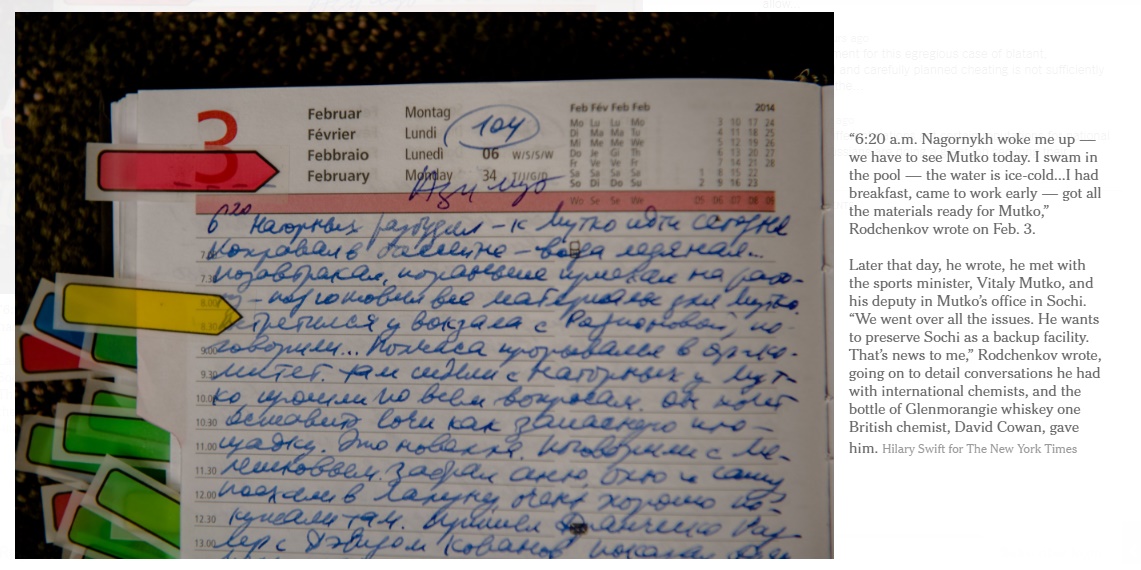 3
Februar Montag
Février Lundi 104
Febbraio Lunedì 06 W/S/S/W
February Monday 34
Feb Fév Feb Feb 2014
Mo Lu Lu Mo 3 10 17 24
Di Ma Ma Tu 4 11 18 25
Mi Me Me We 5 12 19 26
Do Je Gi Th 6 13 20 27
Fr Ve Ve Fr 7 14 21 28
Sa Sa Sa Sa 1 8 15 22
So Di Do Su 2 9 16 23
Wo Se Se We 05 06 07 08 09
6 20 Нагорных разбудил – к Мутко идти сегодня
поплавал в бассейне – вода ледяная...
7.30 позавтракал, пораньше приехал на рабо-
8.00 ту – подготовил все материалы для Мутко.
8.30 Встретился у вокзала с Родионовой, по-
9.00 говорили... Полчаса прорывался в Оргко-
9.30 митет. Там сидели с Нагорных у Мут-
10.00 ко прошли по всем вопросам. Он хочет
10.30 оставить Сочи как запасную пло-
11.00 щадку. Это новость. Поговорили с
11.30
12.00 поехали в очень хорошо по-
12.30 кушали там. Пришел
13.00 с Дэвидом Кованом
“6:20 a.m. Nagornykh woke me up —
we have to see Mutko today. I swam in
the pool — the water is ice-cold...I had
breakfast, came to work early — got all
the materials ready for Mutko,”
Rodchenkov wrote on Feb. 3.
Later that day, he wrote, he met with
the sports minister, Vitaly Mutko, and
his deputy in Mutko’s office in Sochi.
“We went over all the issues. He wants
to preserve Sochi as a backup facility.
That’s news to me,” Rodchenkov wrote,
going on to detail conversations he had
with international chemists, and the
bottle of Glenmorangie whiskey one
British chemist, David Cowan, gave
him. Hilary Swift for The New York Times